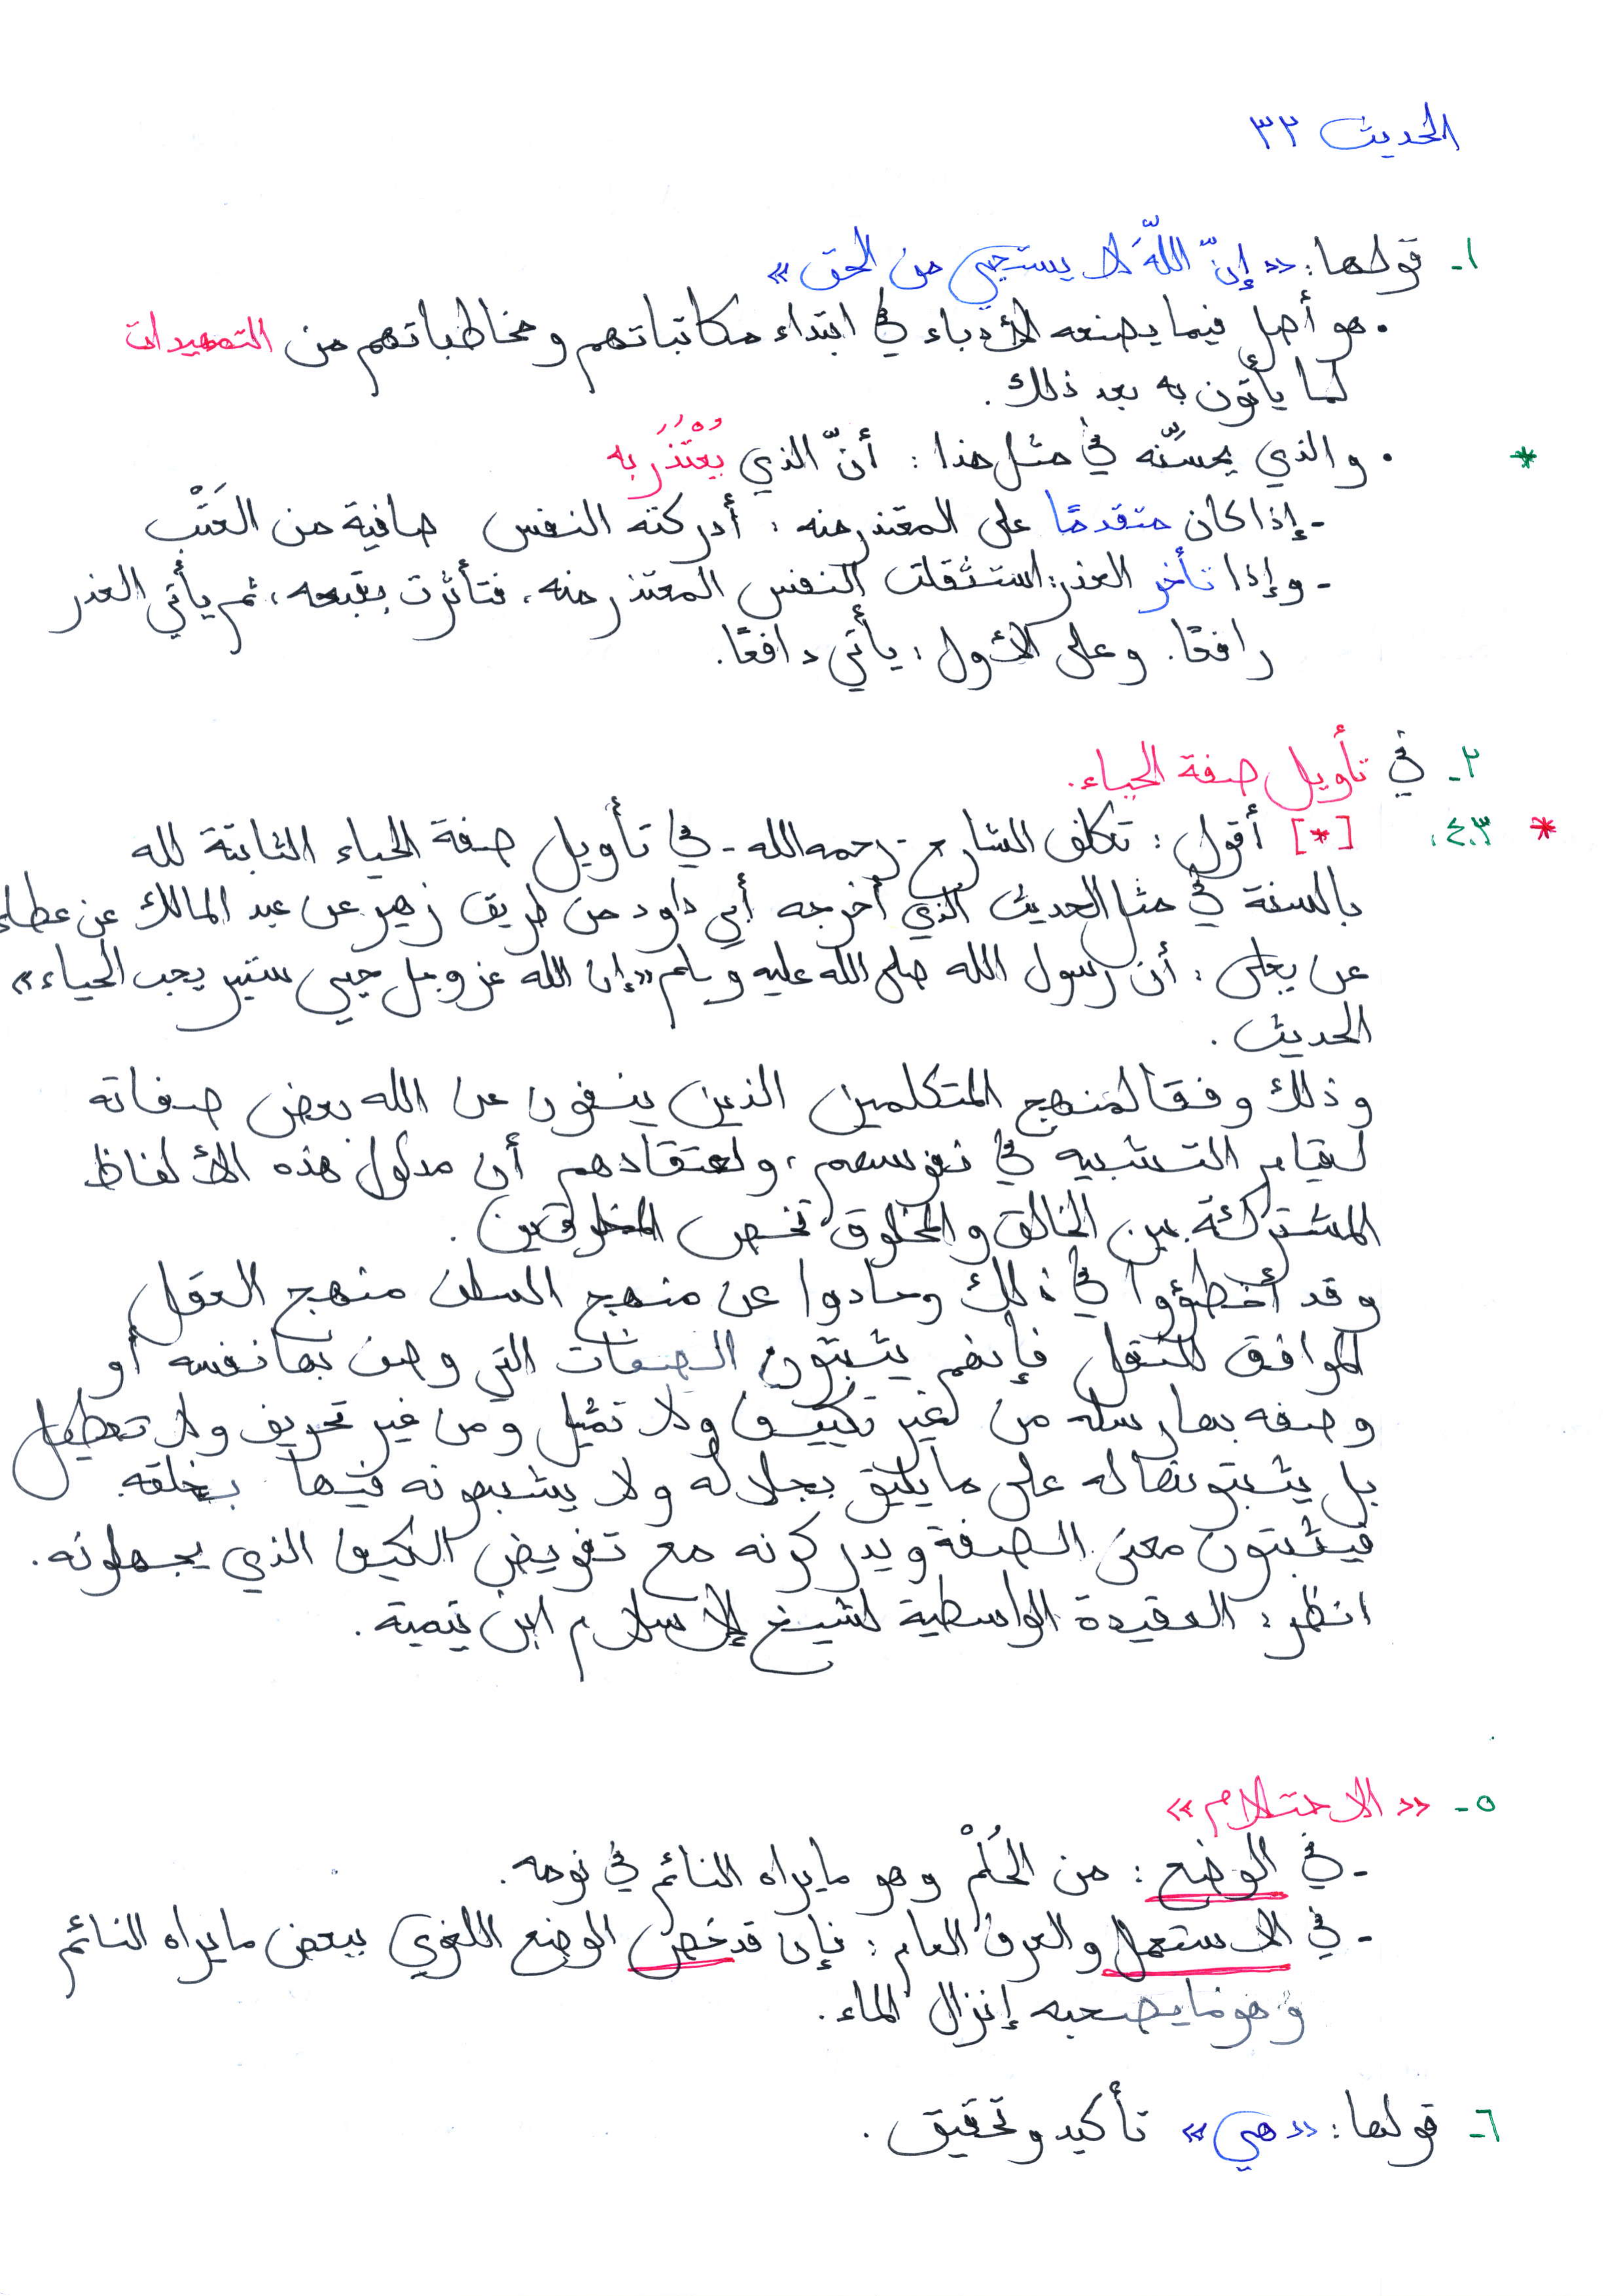 الحديث ٣٢
١- قولها: «إنّ اللّهَ لا يستحيي من الحق»
• هو أصل فيما يصنعه الأدباء في ابتداء مكاتباتهم ومخاطباتهم من التمهيدات
لما يأتون به بعد ذلك.
* • والذي يحسّنه في مثل هذا: أنّ الذي يُعْتَذَر به
- إذا كان متقدمًا على المعتذر منه: أدركته النفس صافية من العَتْب
- وإذا تأخر العذر: استثقلت النفس المعتذر منه، فتأثرت بقبحه، ثم يأتي العذر
رافعًا. وعلى الأول: يأتي دافعًا.
٢- في تأويل صفة الحياء.
* ٤٠٣ [*] أقول: تكلف الشارح - رحمه الله - في تأويل صفة الحياء الثابتة لله
بالسنة في مثل الحديث الذي أخرجه أبي داود من طريق زهير عن عبد المالك عن عطاء
عن يعلى: أن رسول الله صلى الله عليه وسلم «إن الله عز وجل حيي ستير يحب الحياء»
الحديث.
وذلك وفقا لمنهج المتكلمين الذين ينفون عن الله بعض صفاته
لقيام التشبيه في نفوسهم، ولاعتقادهم أن مدلول هذه الألفاظ
المشتركة بين الخالق والمخلوق تخص المخلوقين.
وقد أخطؤوا في ذلك وحادوا عن منهج السلف منهج العقل
الموافق للنقل فإنهم يثبتون الصفات التي وصف بها نفسه أو
وصفه بها رسله من غير تكييف ولا تمثيل ومن غير تحريف ولا تعطيل
بل يثبتونها له على ما يليق بجلاله ولا يشبهونه فيها بخلقه.
فيثبتون معنى الصفة ويدركونه مع تفويض الكيف الذي يجهلونه.
انظر: العقيدة الواسطية لشيخ الإسلام ابن تيمية.
٥- «الاحتلام»
- في الوضع: من الحُلْم وهو ما يراه النائم في نومه.
- في الاستعمل والعرف العام: فإن قد خص الوضع اللغوي ببعض ما يراه النائم
وهو ما يصحبه إنزال الماء.
٦- قولها: «هي» تأكيد وتحقيق.